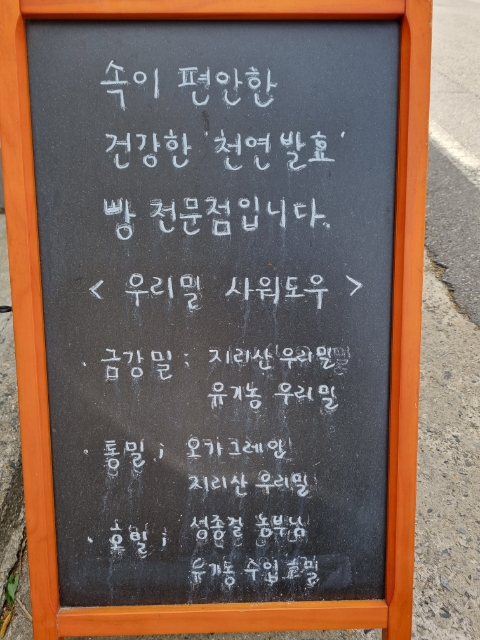 속이 편안한
건강한 '천연발효'
빵 전문점입니다.
< 우리밀 사워도우 >
· 금강밀 : 지리산 우리밀
유기농 우리밀
· 통밀 : 오가그레인
지리산 우리밀
· 호밀 : 성종걸 농부님
유기농 수입 호밀